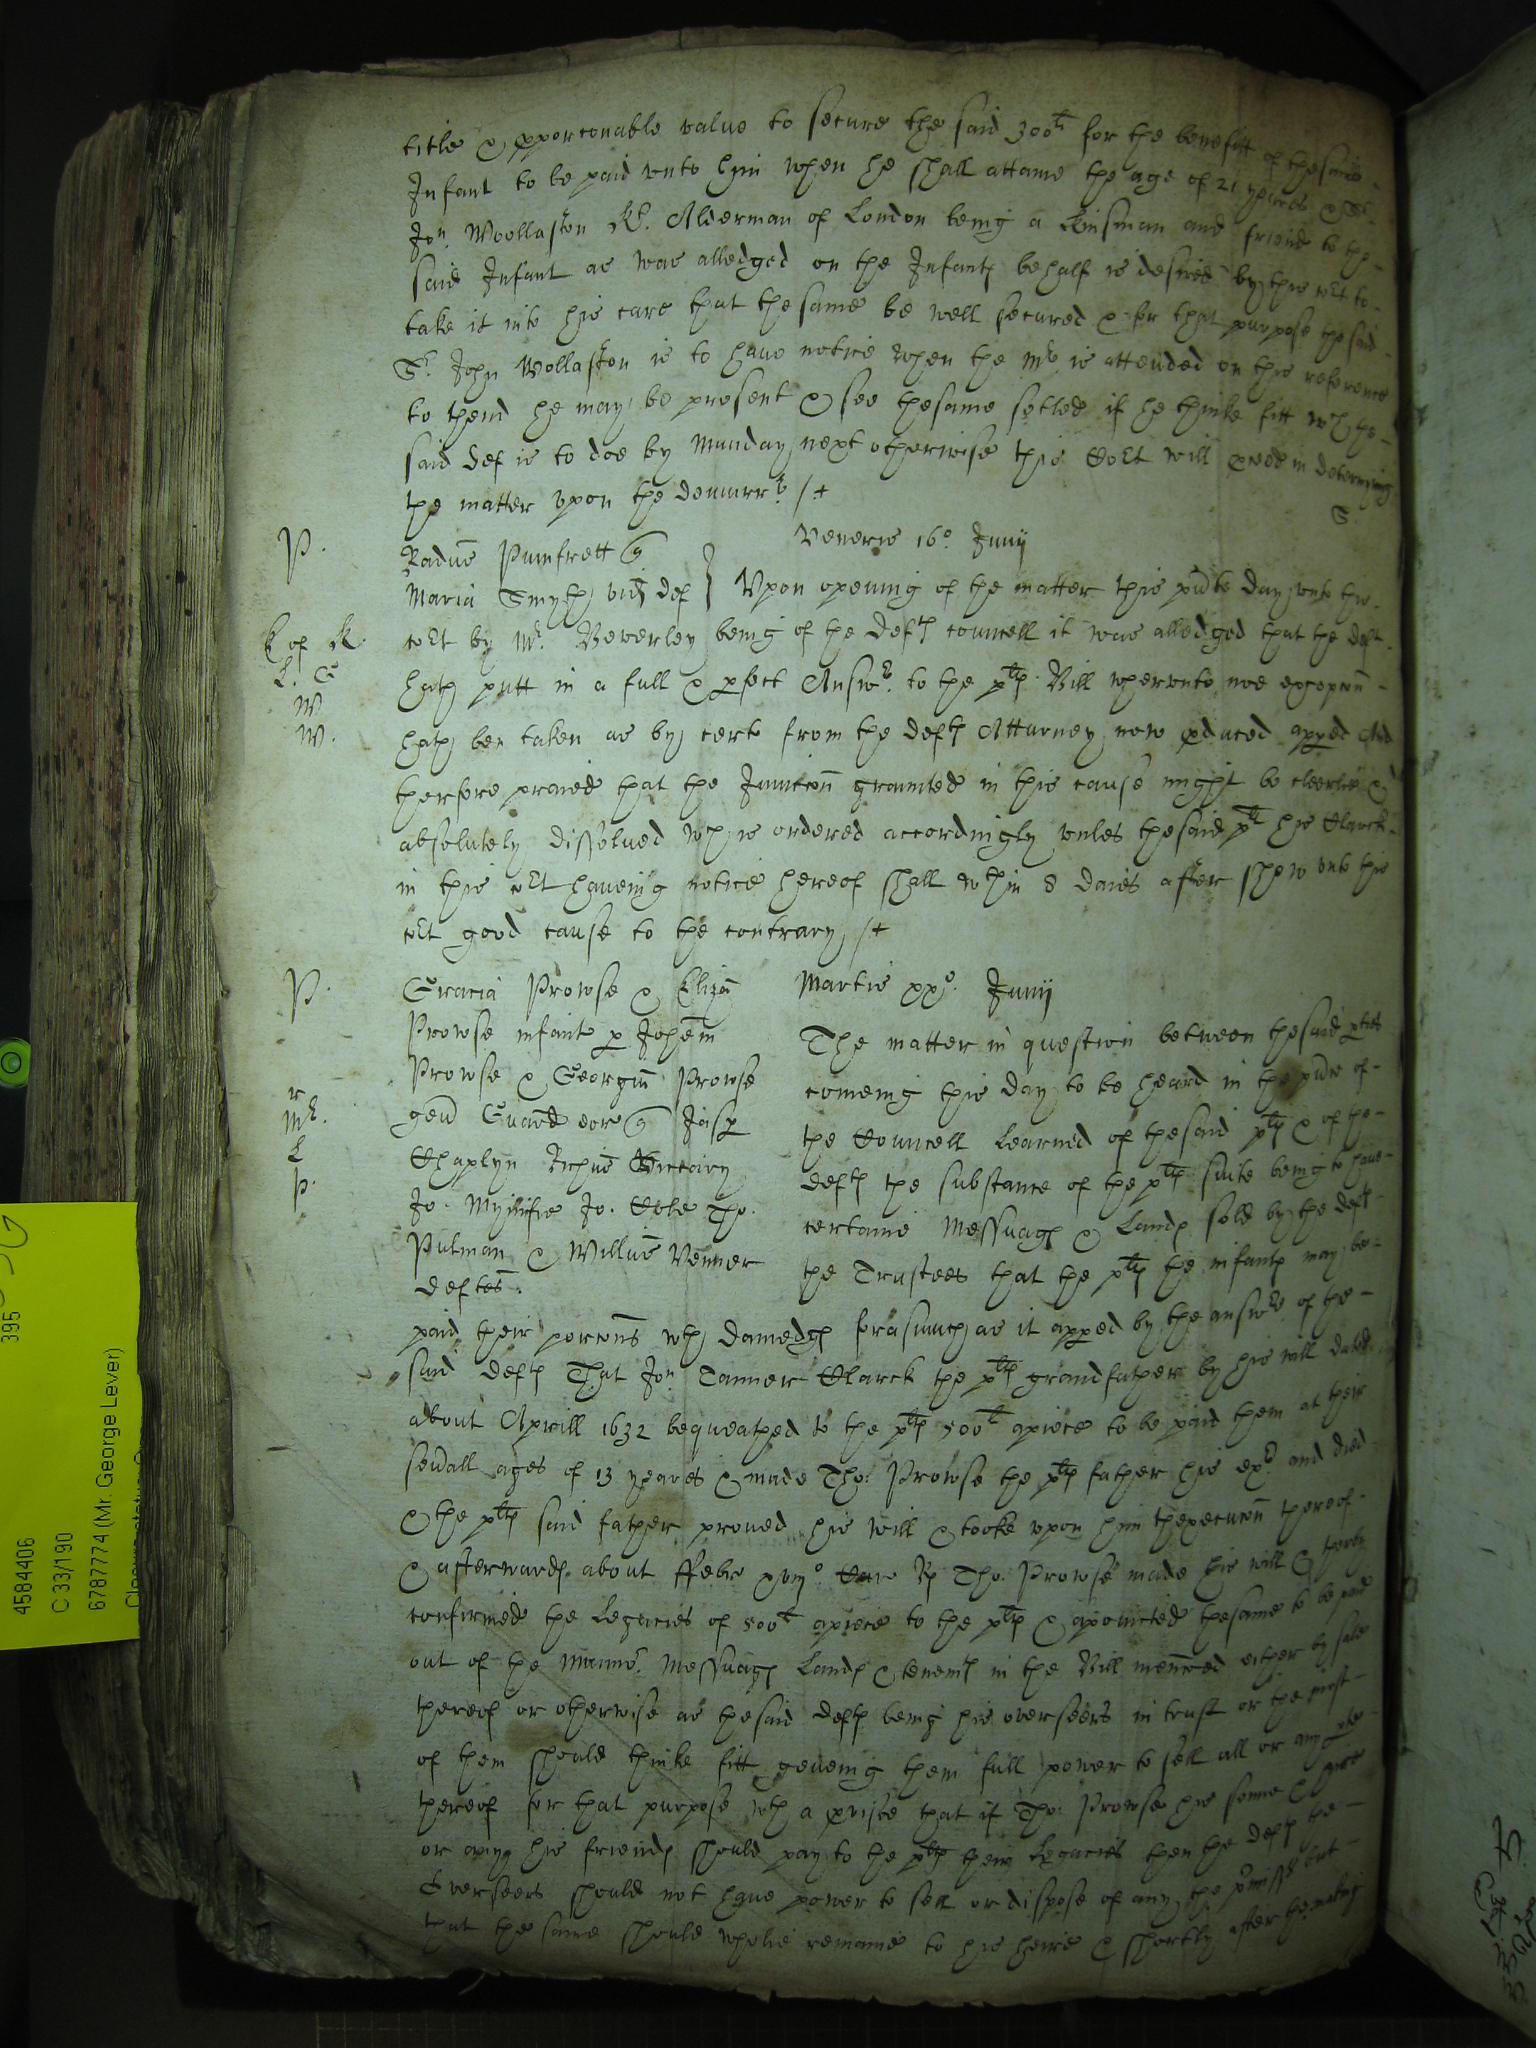 title & pporconable value to secure the said 300li for the benefitt of thesaid
Infant to be paid unto him when he shall attaine the age of 21 yeares & Sr
Jon. Woollaston Kt. Alderman of London being a kinsman and friend to the
said Infant as was alledged on the Infants behalf is desired by this cort to
take it into his care that the same be well secured & for that purpose the said
Sr. John Wollaston is to have notice when the Mr. is attended on this reference
to thend he may be present & see thesame setled if he thinke fitt wch the
said def is to doe by Munday next otherwise this Cort will pceed in determyning
the matter upon the demurrr. /+
S
P.
Veneris 16o. Junij
Radus Pumfrett q
Maria Smyth vid def } Upon opening of the matter this pnte day unto this
K of R.
cort by Mr. Beverley being of the defts councell it was alledged that the deft
L. G
hath putt in a full & pfect Answr. to the plts Bill wherunto noe excepcon
W
W.
hath ben taken as by certe from the defts Atturney now pduced apped And
therfore praied that the Junccon graunted in this cause might be cleerlie &
absolutely dissolved wch is ordered accordingly unles thesaid plt his Clarck
in this cort haveing notice hereof shall wthin 8 daies after shew unto this
cort good cause to the contrary /+
P.
Gracia Prowse & Eliza
Martis xxo. Junij
Prowse infants p Johem
Prowse & Georgiu Prowse
gen Guard eor q Jasp
Chaplyn Richus
Jo. Jo. Cole Tho.
Pulman & Willus Venner
deftes.
r
Mr.
L
p.
The matter in question between thesaid pties
comeing this day to be heard in the pnce of
the Councell Learned of thesaid plts & of the
defts the substance of the plts suite being to have
certaine Messuags & Lands sold by the defts
the Trustees that the plts the infants may be
paid their porcons wth damedgs forasmuch as it apped by the answrs. of the
said defts That Jon Tanner Clarck the plts grandfather by his will dated
about Aprill 1632 bequeathed to the plts 500li apiece to be paid them at their
severall ages of 13 yeares & made Tho: Prowse the plts father his exr. and died
& the plts said father proved his will & tooke upon him thexecucon thereof
& afterwards about ffebr xviijo. Car Rs Tho. Prowse made his will & therby
confirmed the Legacies of 500li apiece to the plts & apointed thesame to be paid
out of the Mannor. Messuags Lands & tenemts in the Bill menconed either by sale
thereof or otherwise as thesaid defts being his overseers in trust or the most
of them should thinke fitt geveing them full power to sell all or any pte
thereof for that purpose wth a pviso that if Tho: Prowse his sonne &
or any his friends should pay to the plts their Legacies then the defts the
Overseers should not have power to sell or dispose of any the pmisses but
that the same should wholie remaine to his heires & shortly after the making
395
4584406
C 33/190
6787774 (Mr. George Lever)